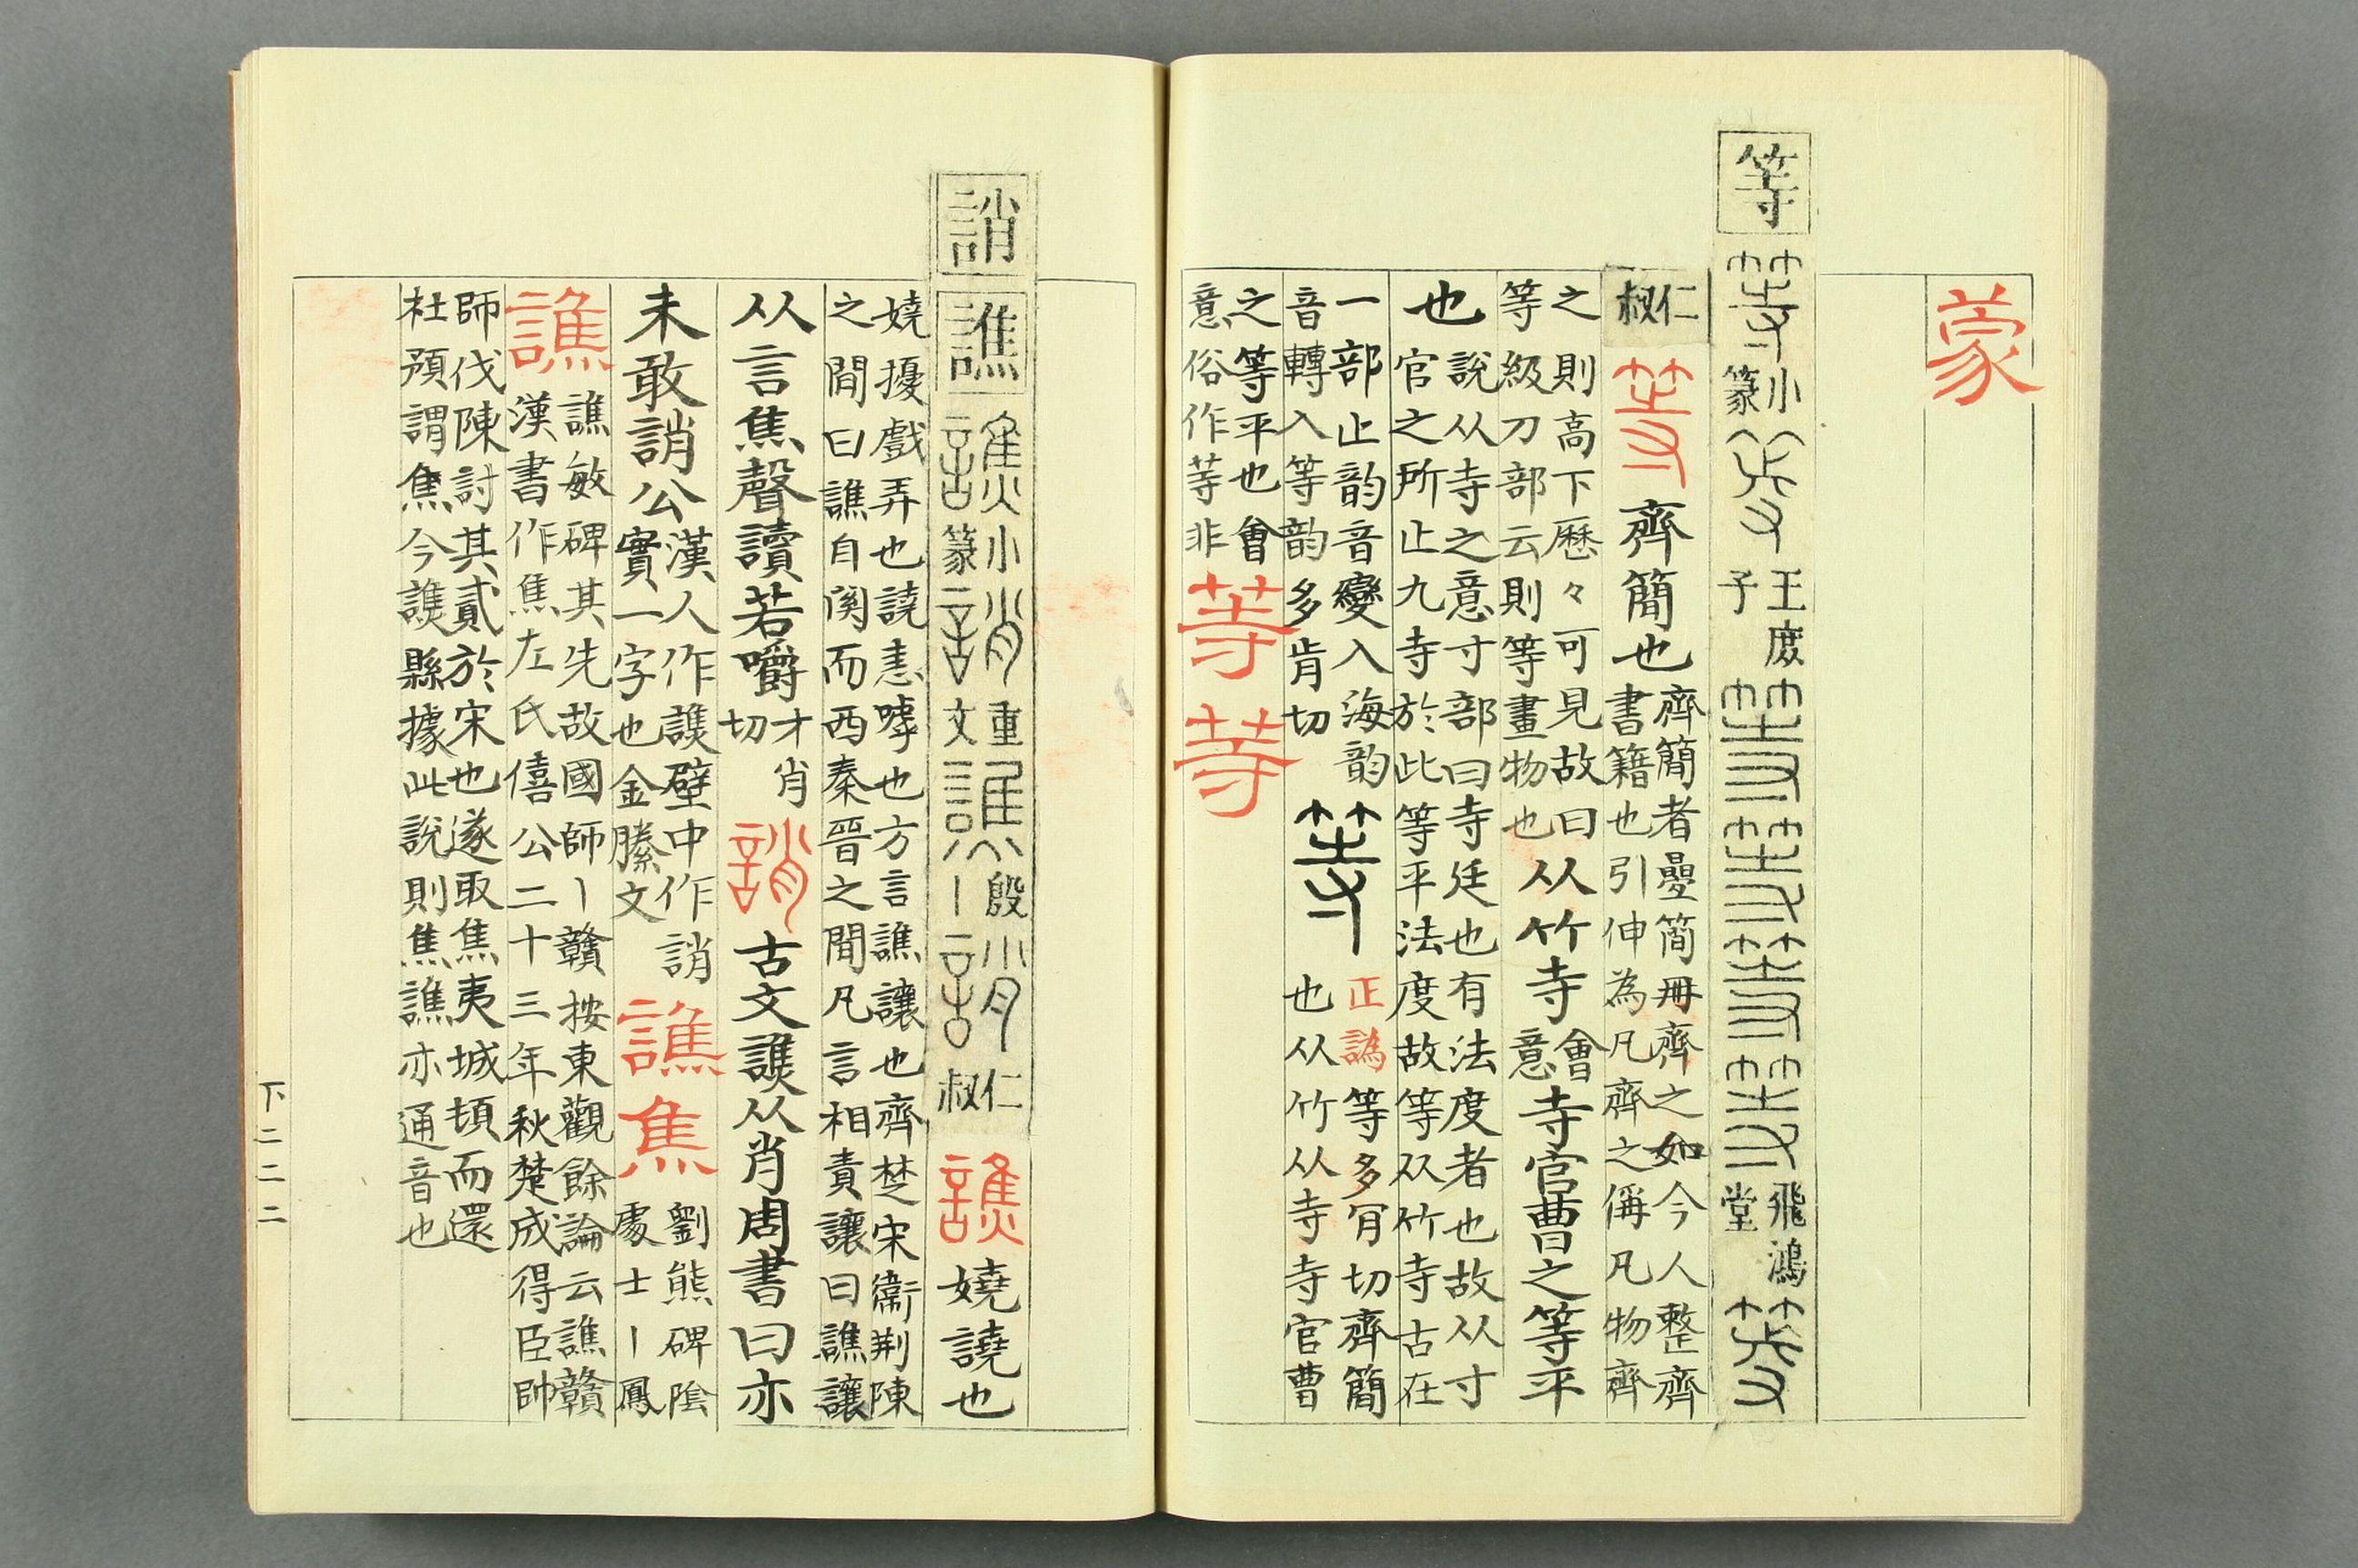 蒙
等
等小篆等王庶子等等等等飛鴻堂等
仁叔
等齊簡也
齊簡者疊簡冊齊之如今人整齊
書籍也引伸為凡齊之偁凡物齊
之則高下歷々可見故曰
等級刀部云則等畫物也
从竹寺會意寺官曹之等平
也
說从寺之意寸部曰寺廷也有法度者也故从寸
官之所止九寺於此等平法度故等从竹寺古在
一部止韵音變入海韵
音轉入等韵多肯切
等
正譌等多肎切齊簡
也从竹从寺寺官曹
之等平也會
意俗作䓁非
䓁䓁
誚
譙
譙小篆誚重文譙殷丨誚仁叔
譙嬈譊也
嬈擾戲弄也譊恚嘑也方言譙讓也齊楚宋衞荆陳
之間曰譙自関而西秦晉之間凡言相責讓曰譙讓
从言焦聲讀若嚼才肖切
誚古文譙从肖周書曰亦
未敢誚公
漢人作譙壁中作誚
實一字也金縢文
譙焦
劉熊碑陰
處士丨鳳
譙
譙敏碑其先故國師丨贛按東觀餘論云譙贛
漢書作焦左氏僖公二十三年秋楚成得臣帥
師伐陳討其貳於宋也遂取焦夷城頓而還
社預謂焦今譙縣據此說則焦譙亦通音也
下二二二